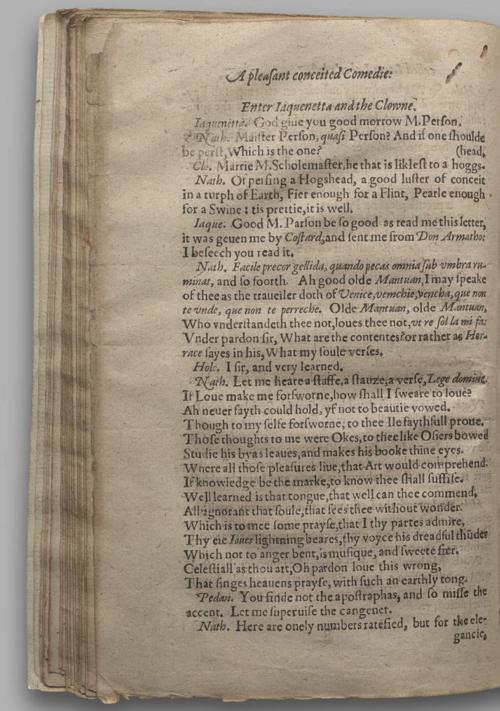 A pleaſant conceited Comedie:
Enter Iaquenetta and the Clowne.
Iaquenetta. God giue you good morrow M. Perſon.
Nath. Maiſter Perſon, quaſi Perſon? And if one ſhoulde
be perſt, Which is the one? (head,
Clo. Marrie M. Scholemaſter, he that is likleſt to a hoggs-
Nath. Of perſing a Hogshead, a good luſter of conceit
in a turph of Earth, Fier enough for a Flint, Pearle enough
for a Swine: tis prettie, it is well.
Iaque. Good M. Parſon be ſo good as read me this letter,
it was geuen me by Coſtard, and ſent me from Don Armatho:
I beſeech you read it.
Nath. Facile precor gellida, quando pecas omnia ſub vmbra ru-
minat, and ſo foorth. Ah good olde Mantuan, I may ſpeake
of thee as the traueiler doth of Venice, vemchie, vencha, que non
te vnde, que non te perreche. Olde Mantuan, olde Mantuan,
Who vnderſtandeth thee not, loues thee not, vt re ſol la mi fa:
Vnder pardon ſir, What are the contentes? or rather as Hor-
race ſayes in his, What my ſoule verſes.
Hole. I ſir, and very learned.
Nath. Let me heare a ſtaffe, a ſtauze, a verſe, Lege domine.
If Loue make me forſworne, how ſhall I ſweare to loue?
Ah neuer fayth could hold, yf not to beautie vowed.
Though to my ſelfe forſworne, to thee Ile faythfull proue.
Thoſe thoughts to me were Okes, to thee like Oſiers bowed
Studie his byas leaues, and makes his booke thine eyes.
Where all thoſe pleaſures liue, that Art would comprehend.
If knowledge be the marke, to know thee ſhall ſuffiſe.
Well learned is that tongue, that well can thee commend,
All ignorant that ſoule, that ſees thee without wonder.
Which is to mee ſome prayſe, that I thy partes admire,
Thy eie Ioues lightning beares, thy voyce his dreadful thũder
Which not to anger bent, is muſique, and ſweete fier.
Celeſtiall as thou art, Oh pardon loue this wrong,
That ſinges heauens prayſe, with ſuch an earthly tong.
Pedan. You finde not the apoſtraphas, and ſo miſſe the
accent. Let me ſuperuiſe the cangenet.
Nath. Here are onely numbers ratefied, but for the ele-
gancie,